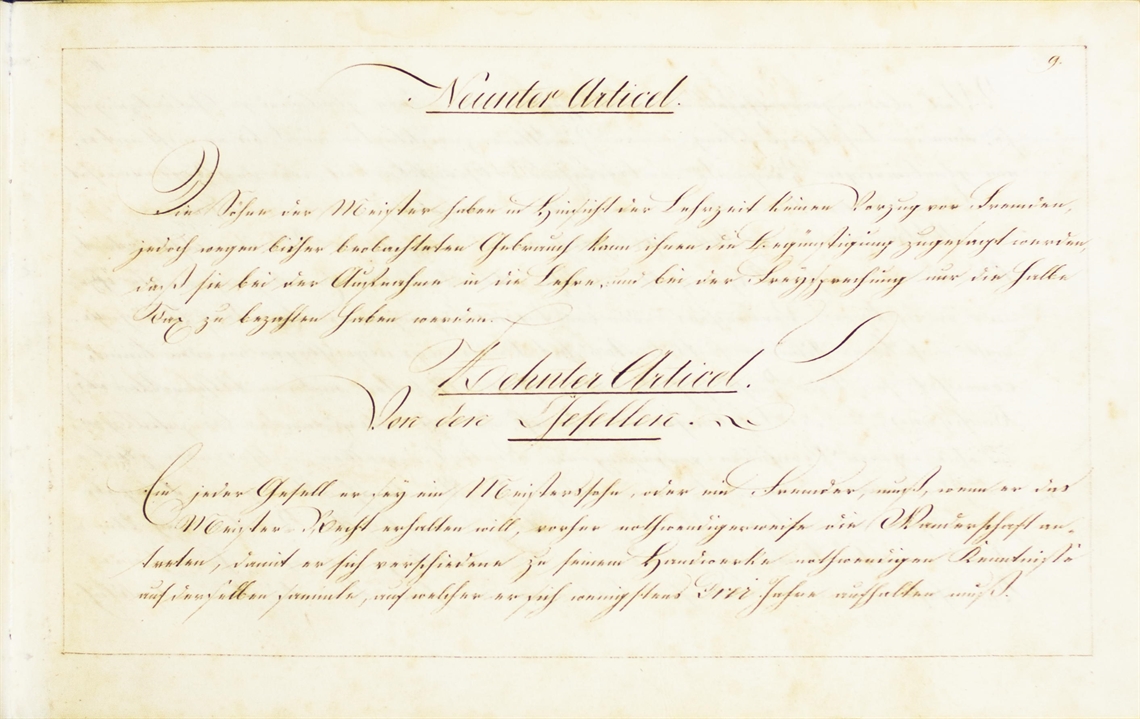 9.
Neunter Articel.
Die Söhne der Meister haben in Hinsicht der Lehrzeit keinen Vorzug vor Fremden,
jedoch wegen bisher beobachteten Gebrauch kann ihnen die Begünstigung zugesagt werden,
daß sie bei der Aufnahme in die Lehre, und bei der Freysprechung nur die halbe
Tax zu bezahlen haben werden.
Zehnter Articel.
Von den Gesellen.
Ein jeder Gesell er sey ein Meisterssohn, oder ein Fremder, muß, wenn er das
Meister-Recht erhalten will, vorher nothwendigerweise die Wanderschaft an-
treten, damit er sich verschiedene zu seinem Handwerke nothwendigen Kenntniße
auf derselben sammle, auf welcher er sich wenigstens drei Jahre aufhalten muß.